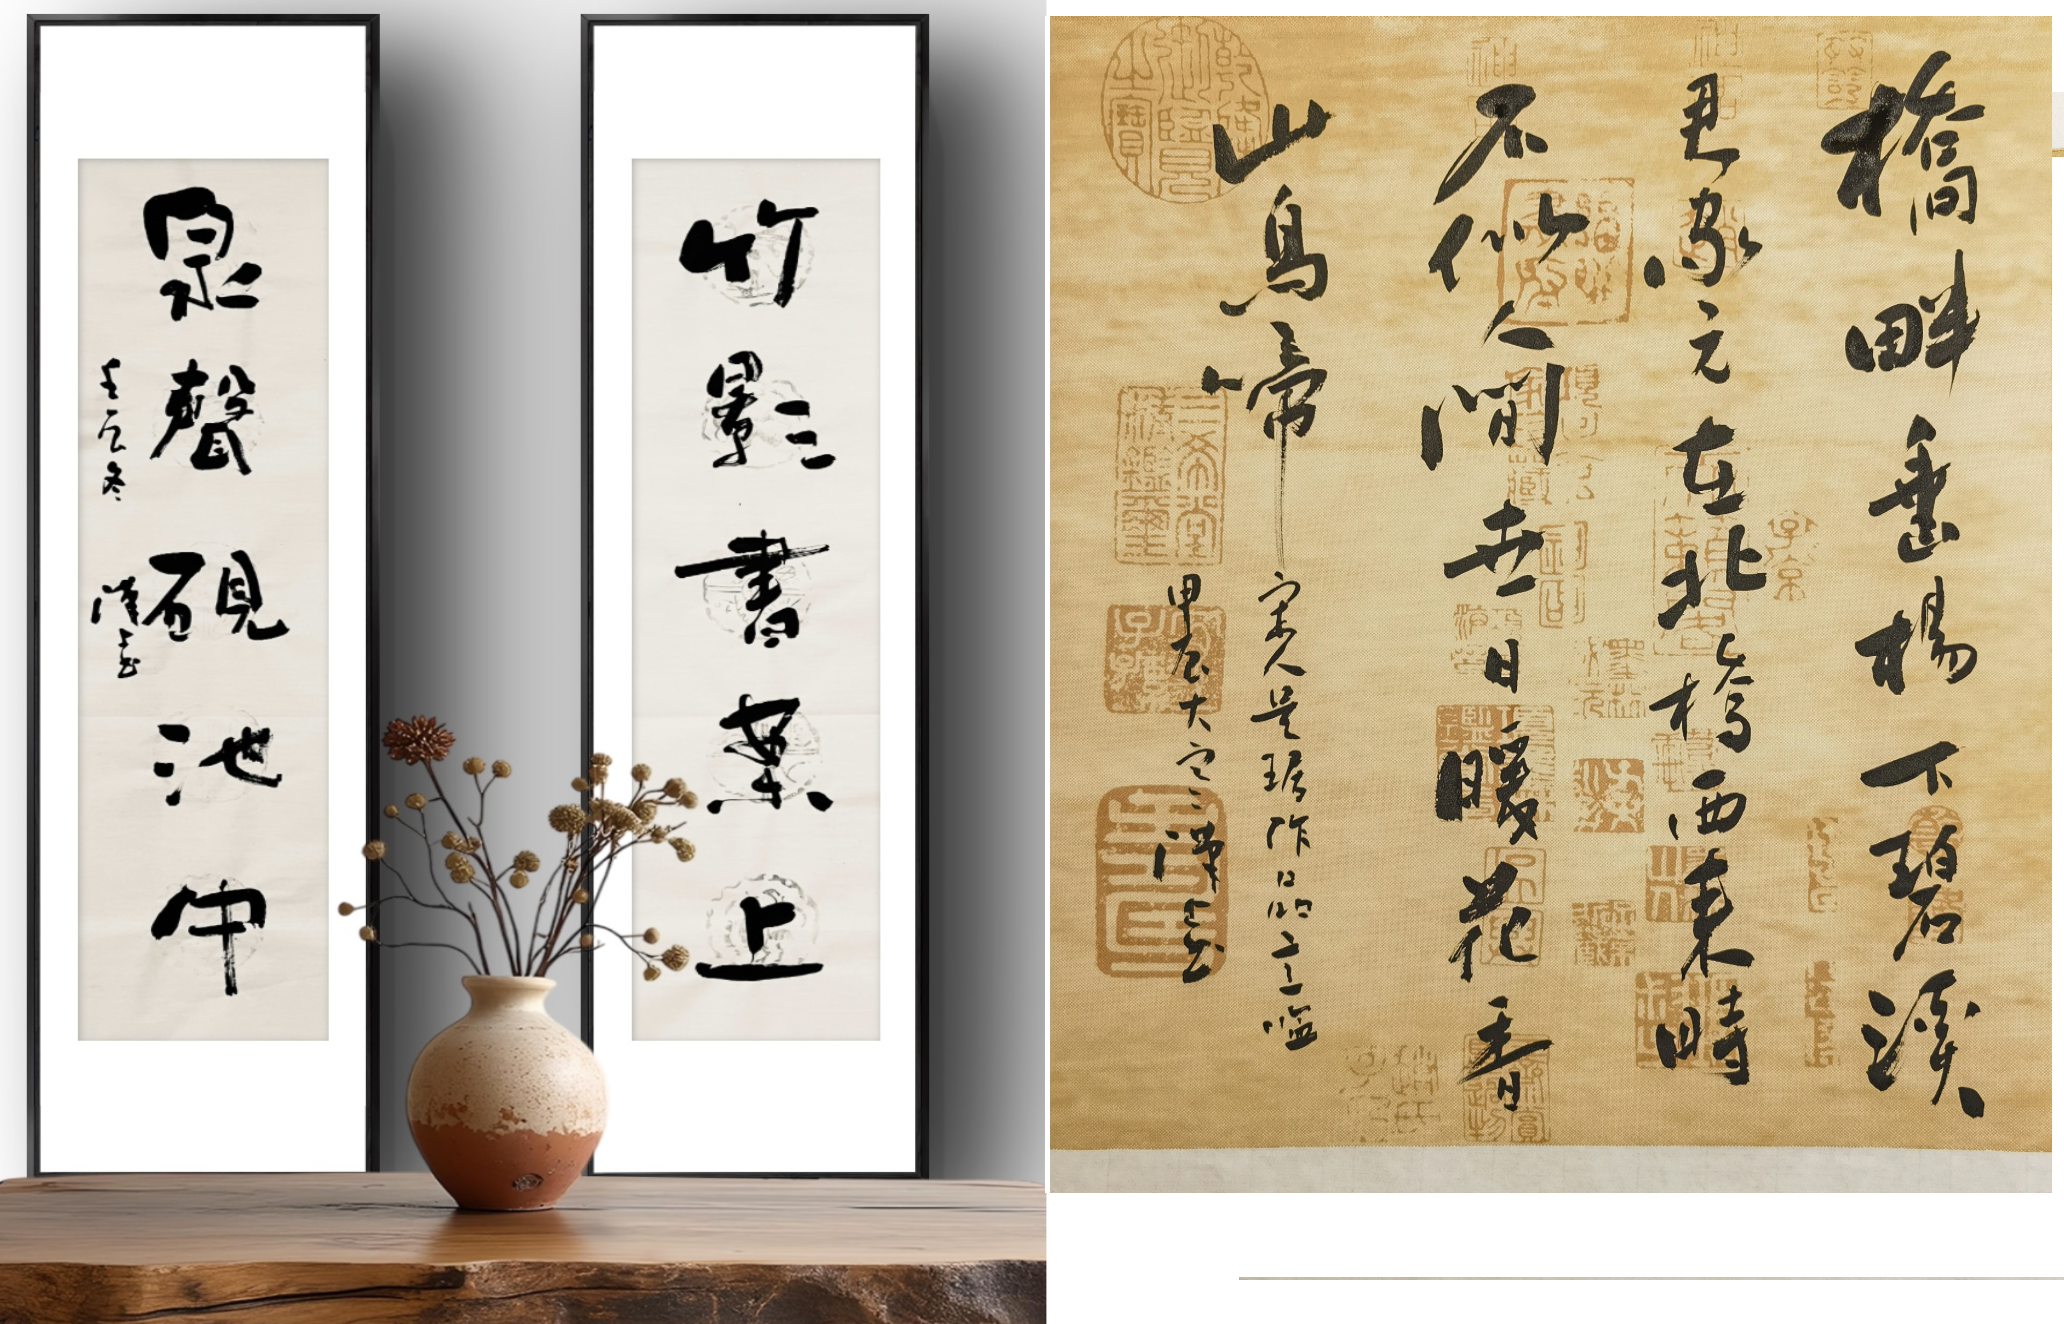 竹影書案上
泉聲硯池中
壬辰冬
橋畔垂楊下碧溪
君家元在北橋西來時
不似人間世日暖花香
山鳥啼
宋人吴琚作品
甲辰大